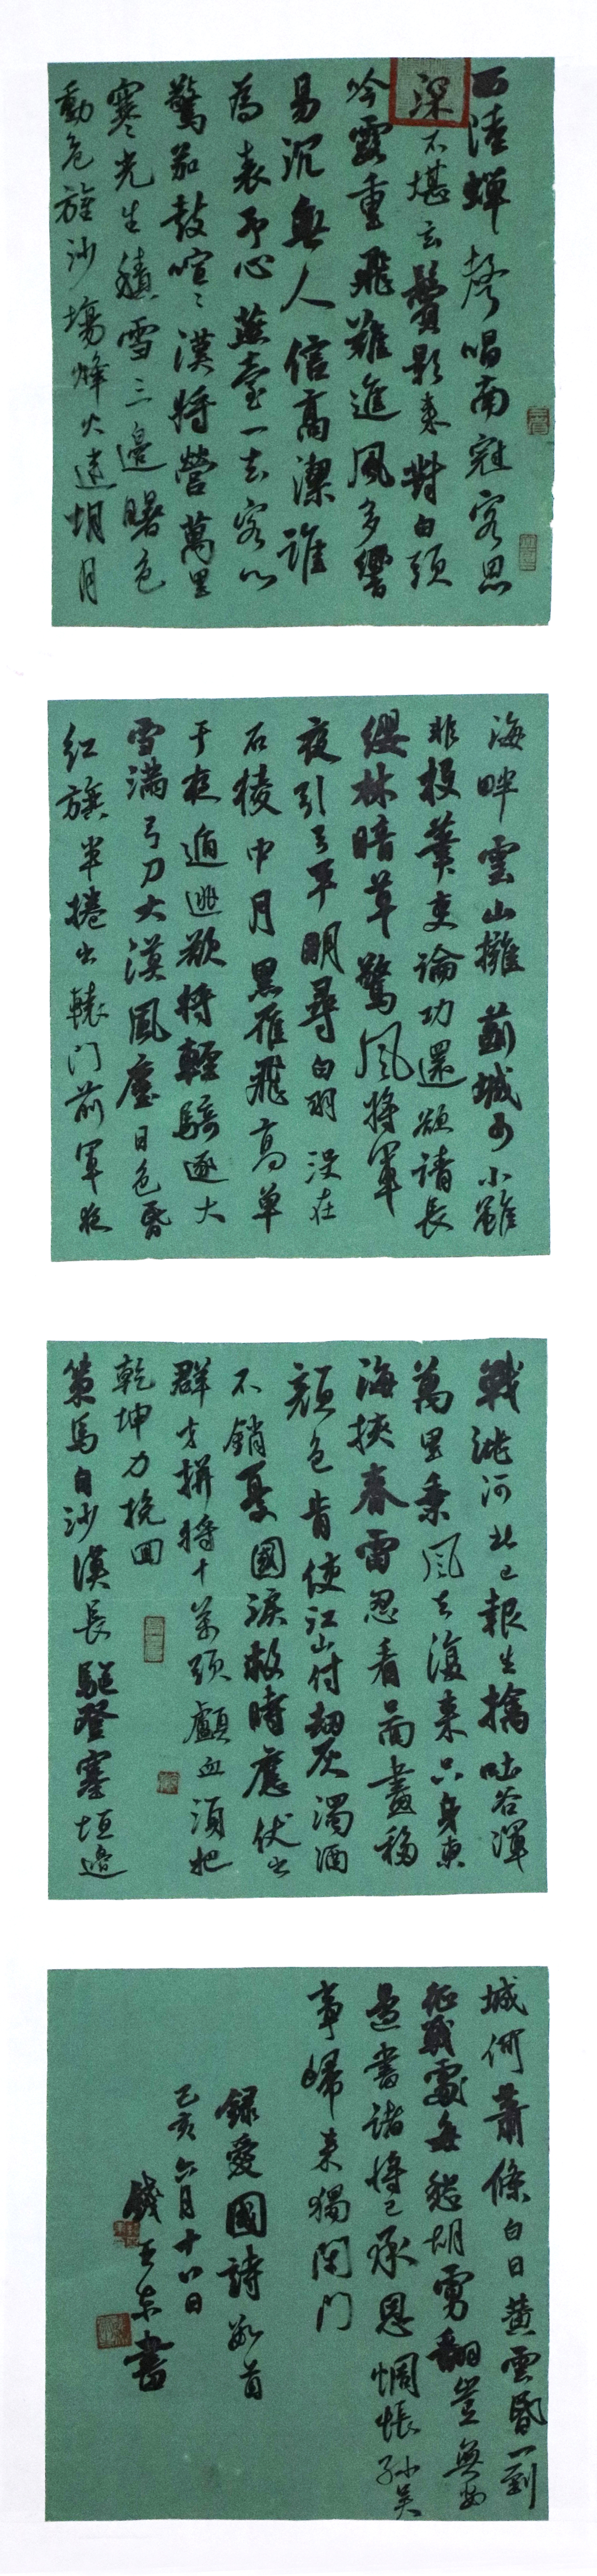 西陸蟬聲唱南冠客思
深不堪玄鬢影來對白頭
吟露重飛難進風多響
易沉無人信高潔誰
為表予心燕臺一去客心
驚笳鼓喧〻漢將營萬里
寒光生積雪三邊曙色
動危旌沙場烽火連胡月
海畔雲山擁薊城少小雖
非投筆吏論功還欲請長
纓林暗草驚風將軍
夜引弓平明尋白羽沒在
石棱中月黑雁飛高單
于夜遁逃欲將輕騎逐大
雪滿弓刀大漠風塵日色昏
紅旗半捲出轅門前軍夜
戰洮河北已報生擒吐谷渾
萬里乘風去復來只身東
海挾春雷忍看圖畫移
顏色肯使江山付劫灰濁酒
不銷憂國淚救時應仗出
群才拼將十萬頭顱血須把
乾坤力挽回
策馬自沙漠長驅登塞垣邊
城何蕭條白日黃雲昏一到
征戰處每愁胡虜翻豈無安
邊書諸將已承恩惆悵孫吳
事歸來獨閉門
錄愛國詩數首
己亥六月十八日
錢王東書